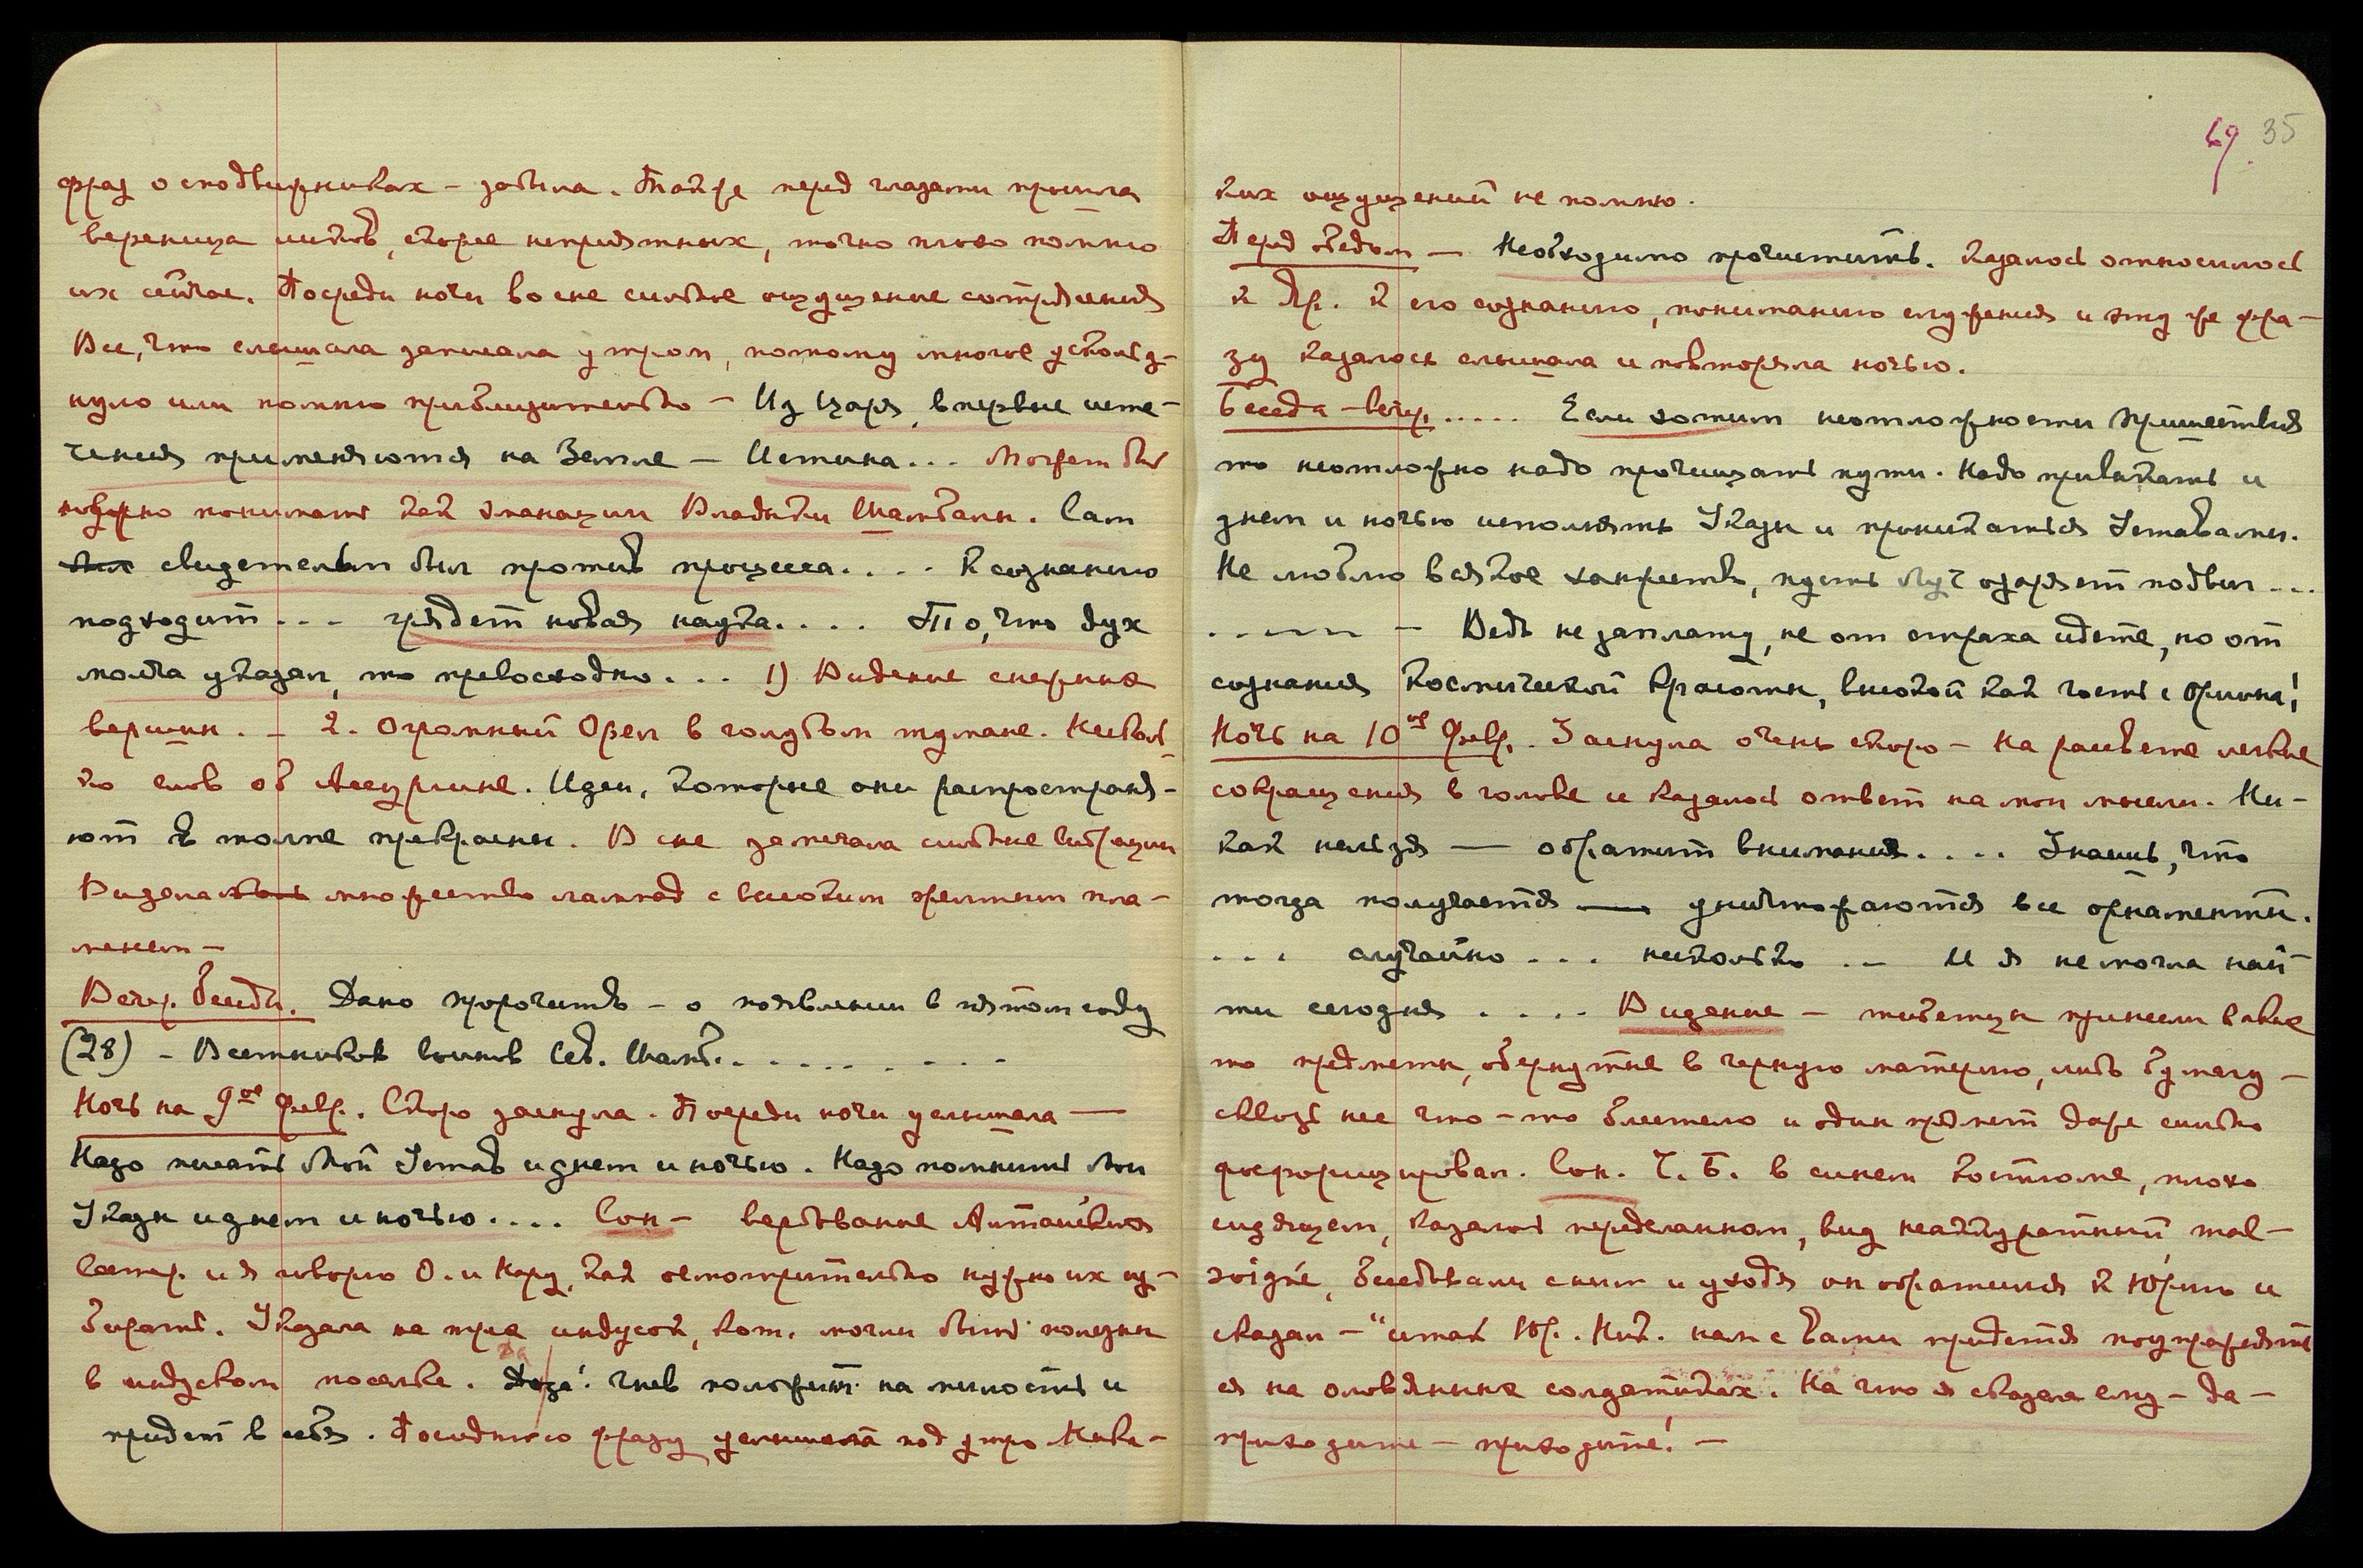 фраз о сподвижниках – забыла. Также перед глазами прошла
вереница ликов, скорее неприятных, точно плохо помню
их сейчас. Посреди ночи во сне сильное ощущение сотрясения
Все, что слышала записала утром, потому многое ускольз-
нуло или помню приблизительно – Из Цара, впервые исте-
чения применяются на Земле – Истина... Может быть
нужно понимать как эманации Владыки Шамбалы. Сам
свидетелем был против процесса.... К сознанию
подходит... грядет новая наука.... То, что дух
молча указал, то превосходно... 1) Видение снежных
вершин. – 2. Огромный Орел в голубом тумане. Несколь-
ко слов об Ассургине. Идеи, которые они распространя-
ют в толпе прекрасны. В сне замечала сильные вибрации
Видела множество лампад с высоким желтым пла-
менем –
Вечер. беседы. Дано пророчить – о появлении в пятом году
(28) – Вестников воинов Св. Шамб. . . . . . . . .
Ночь на 9ое Февр. Скоро заснула. Посреди ночи услышала —
Надо писать Мой Устав и днем и ночью. Надо помнить Мои
Указы и днем и ночью.... Сон – вербование
и я говорю О. и Кару, как осмотрительно нужно их вы-
бирать. Указала на трех индусов, кот. могли быть полезны
в индусском поселке. Да! гнев положит на милость и
придет в себя. Последнюю фразу услышала под утро. Ника-
69. 35
ких ощущений не помню.
Перед обедом — Необходимо прочистить. Казалось относилось
к Яр. к его сознанию, пониманию служения и эту же фра-
зу казалось слышала и повторяла ночью.
Беседа – вечер..... Если хотим неотложности Пришествия
то неотложно надо прочищать пути. Надо привыкать и
днем и ночью исполнять Указы и проникаться Уставами.
Не люблю всякое ханжество, пусть Луч озаряет подвиг...
. . . . . – Ведь не за плату, не от страха идете, но от
сознания Космической Красоты, высокой как гость с Ориона!
Ночь на 10ое Февр. Заснула очень скоро – На рассвете легкие
сокращения в голове и казалось ответ на мои мысли. Ни-
как нельзя — обратит внимания.... Знаешь, что
тогда получается — уничтожаются все орнаменты.
... случайно ... несколько .– И я не могла най-
ти сегодня .... Видение – тибетцы принесли какие
то предметы, обернутые в черную материю, либо бумагу –
сквозь нее что-то блестело и один предмет даже сильно
фосфоресцировал. Сон. Ч. Б. в синем костюме, плохо
сидящем, казалось переделанном, вид неаккуратный, mal-
soigné, беседовали с ним и уходя он обратился к Юрию и
сказал – "итак Юр. Ник. нам с вами придется поупражнять
ся на оловянных солдатиках. На что я сказала ему – да –
приходите – приходите! –